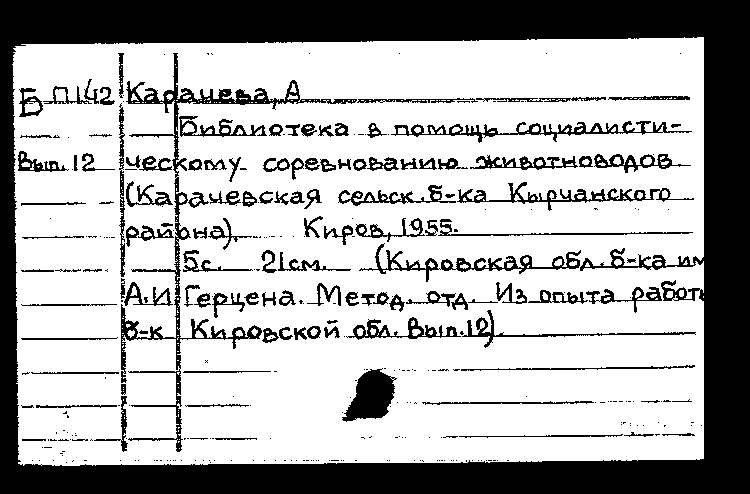 Б П142 Карачева, А
Библиотека в помощь социалисти-
Вып. 12 ческому соревнованию животноводов.
(Карачевская сельск. б-ка Кырчанского
района). Киров, 1955.
5с. 21см. (Кировская обл. б-ка им
А.И Герцена. Метод. отд. Из опыта работы
б-к Кировской обл. Вып.12).